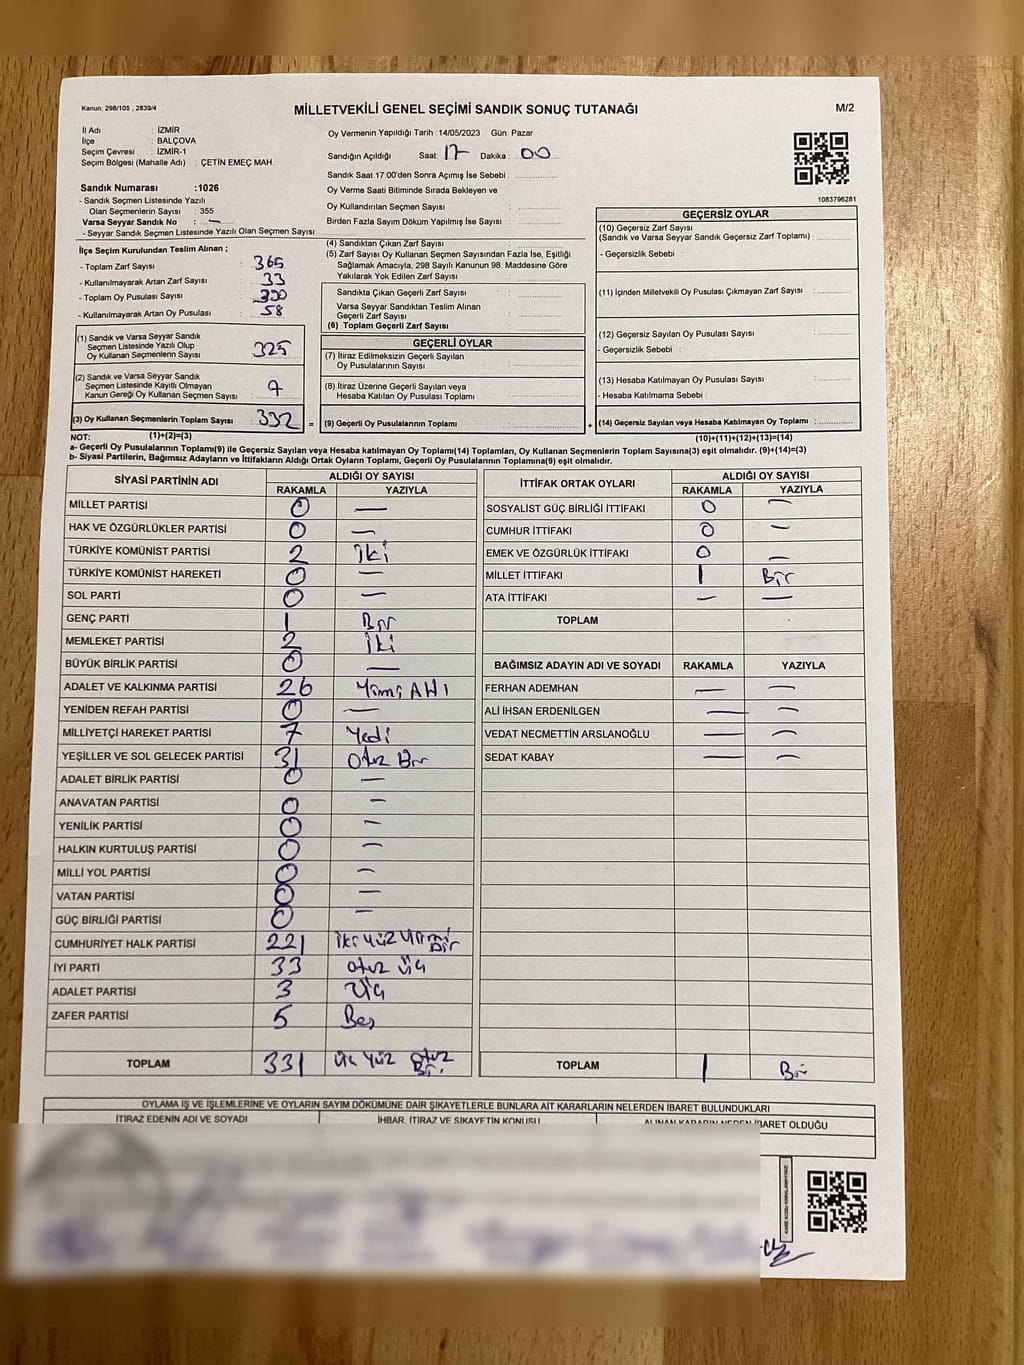 Kanun, 298/105 , 2839/4
MİLLETVEKİLİ GENEL SEÇİMİ SANDIK SONUÇ TUTANAĞI
M/2
İl Adı : İZMİR
İlçe : BALÇOVA
Seçim Çevresi : İZMİR-1
Seçim Bölgesi (Mahalle Adı) : ÇETİN EMEÇ MAH.
Sandık Numarası :1026
- Sandık Seçmen Listesinde Yazılı
Olan Seçmenlerin Sayısı : 355
Varsa Seyyar Sandık No : —
- Seyyar Sandık Seçmen Listesinde Yazılı Olan Seçmen Sayısı:
Oy Vermenin Yapıldığı Tarih :14/05/2023 Gün: Pazar
Sandığın Açıldığı Saat: 17 Dakika : 00
Sandık Saat 17:00'den Sonra Açımış İse Sebebi :
Oy Verme Saati Bitiminde Sırada Bekleyen ve
Oy Kullandırılan Seçmen Sayısı :
Birden Fazla Sayım Döküm Yapılmış İse Sayısı :
1083796281
İlçe Seçim Kurulundan Teslim Alınan ;
- Toplam Zarf Sayısı : 365
- Kullanılmayarak Artan Zarf Sayısı : 33
- Toplam Oy Pusulası Sayısı : 390
- Kullanılmayarak Artan Oy Pusulası : 58
(1) Sandık ve Varsa Seyyar Sandık
Seçmen Listesinde Yazılı Olup
Oy Kullanan Seçmenlerin Sayısı : 325
(2) Sandık ve Varsa Seyyar Sandık
Seçmen Listesinde Kayıtlı Olmayan
Kanun Gereği Oy Kullanan Seçmen Sayısı : 7
(3) Oy Kullanan Seçmenlerin Toplam Sayısı : 332 =
(4) Sandıktan Çıkan Zarf Sayısı :
(5) Zarf Sayısı Oy Kullanan Seçmen Sayısından Fazla İse, Eşitliği
Sağlamak Amacıyla, 298 Sayılı Kanunun 98. Maddesine Göre
Yakılarak Yok Edilen Zarf Sayısı :
Sandıkta Çıkan Geçerli Zarf Sayısı :
Varsa Seyyar Sandıktan Teslim Alınan
Geçerli Zarf Sayısı :
(6) Toplam Geçerli Zarf Sayısı :
GEÇERLİ OYLAR
(7) İtiraz Edilmeksizin Geçerli Sayılan
Oy Pusulalarının Sayısı :
(8) İtiraz Üzerine Geçerli Sayılan veya
Hesaba Katılan Oy Pusulası Toplamı :
(9) Geçerli Oy Pusulalarının Toplamı : +
GEÇERSİZ OYLAR
(10) Geçersiz Zarf Sayısı
(Sandık ve Varsa Seyyar Sandık Geçersiz Zarf Toplamı) :
- Geçersizlik Sebebi :
(11) İçinden Milletvekili Oy Pusulası Çıkmayan Zarf Sayısı :
(12) Geçersiz Sayılan Oy Pusulası Sayısı :
- Geçersizlik Sebebi :
(13) Hesaba Katılmayan Oy Pusulası Sayısı :
- Hesaba Katılmama Sebebi :
(14) Geçersiz Sayılan veya Hesaba Katılmayan Oy Toplamı :
NOT: (1)+(2)=(3)
(10)+(11)+(12)+(13)=(14)
a- Geçerli Oy Pusulalarının Toplamı(9) ile Geçersiz Sayılan veya Hesaba katılmayan Oy Toplamı(14) Toplamları, Oy Kullanan Seçmenlerin Toplam Sayısına(3) eşit olmalıdır. (9)+(14)=(3)
b- Siyasi Partilerin, Bağımsız Adayların ve İttifakların Aldığı Ortak Oyların Toplamı, Geçerli Oy Pusulalarının Toplamına(9) eşit olmalıdır.
SİYASİ PARTİNİN ADI ALDIĞI OY SAYISI
RAKAMLA YAZIYLA
MİLLET PARTİSİ 0 —
HAK VE ÖZGÜRLÜKLER PARTİSİ 0 —
TÜRKİYE KOMÜNİST PARTİSİ 2 iki
TÜRKİYE KOMÜNİST HAREKETİ 0 —
SOL PARTİ 0 —
GENÇ PARTİ 1 Bir
MEMLEKET PARTİSİ 2 iki
BÜYÜK BİRLİK PARTİSİ 0 —
ADALET VE KALKINMA PARTİSİ 26 Yirmi Altı
YENİDEN REFAH PARTİSİ 0 —
MİLLİYETÇİ HAREKET PARTİSİ 7 Yedi
YEŞİLLER VE SOL GELECEK PARTİSİ 31 Otuz Bir
ADALET BİRLİK PARTİSİ 0 —
ANAVATAN PARTİSİ 0 —
YENİLİK PARTİSİ 0 —
HALKIN KURTULUŞ PARTİSİ 0 —
MİLLİ YOL PARTİSİ 0 —
VATAN PARTİSİ 0 —
GÜÇ BİRLİĞİ PARTİSİ 0 —
CUMHURİYET HALK PARTİSİ 221 iki Yüz Yirmi Bir
İYİ PARTİ 33 otuz üç
ADALET PARTİSİ 3 üç
ZAFER PARTİSİ 5 Beş
TOPLAM 331 üç Yüz otuz Bir.
İTTİFAK ORTAK OYLARI ALDIĞI OY SAYISI
RAKAMLA YAZIYLA
SOSYALİST GÜÇ BİRLİĞİ İTTİFAKI 0 —
CUMHUR İTTİFAKI 0 —
EMEK VE ÖZGÜRLÜK İTTİFAKI 0 —
MİLLET İTTİFAKI 1 Bir
ATA İTTİFAKI — —
TOPLAM
BAĞIMSIZ ADAYIN ADI VE SOYADI RAKAMLA YAZIYLA
FERHAN ADEMHAN — —
ALİ İHSAN ERDENİLGEN — —
VEDAT NECMETTİN ARSLANOĞLU — —
SEDAT KABAY — —
TOPLAM 1 Bir
OYLAMA İŞ VE İŞLEMLERİNE VE OYLARIN SAYIM DÖKÜMÜNE DAİR ŞİKAYETLERLE BUNLARA AİT KARARLARIN NELERDEN İBARET BULUNDUKLARI
İTİRAZ EDENİN ADI VE SOYADI İHBAR, İTİRAZ VE ŞİKAYETİN KONUSU ALINAN KARARIN NEDEN İBARET OLDUĞU